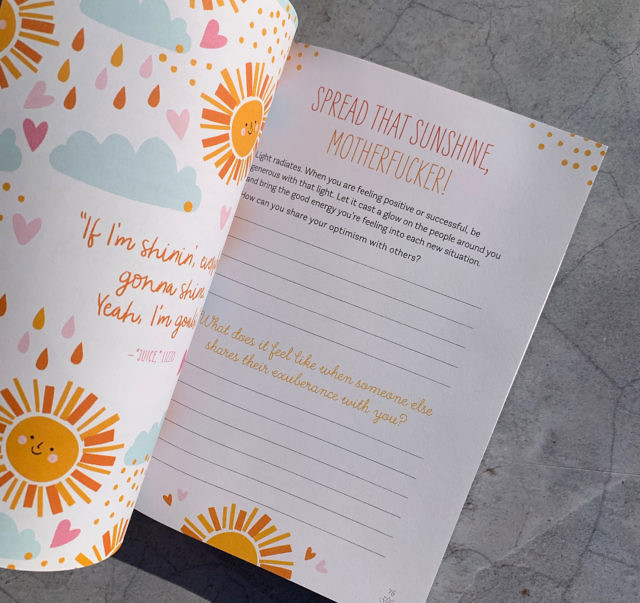 "If I'm shinin',
gonna shine
Yeah, I'm
– "JUICE," LIZZO
SPREAD THAT SUNSHINE,
MOTHERFUCKER!
Light radiates. When you are feeling positive or successful, be
generous with that light. Let it cast a glow on the people around you
and bring the good energy you're feeling into each new situation.
How can you share your optimism with others?
What does it feel like when someone else
shares their exuberance with you?
76